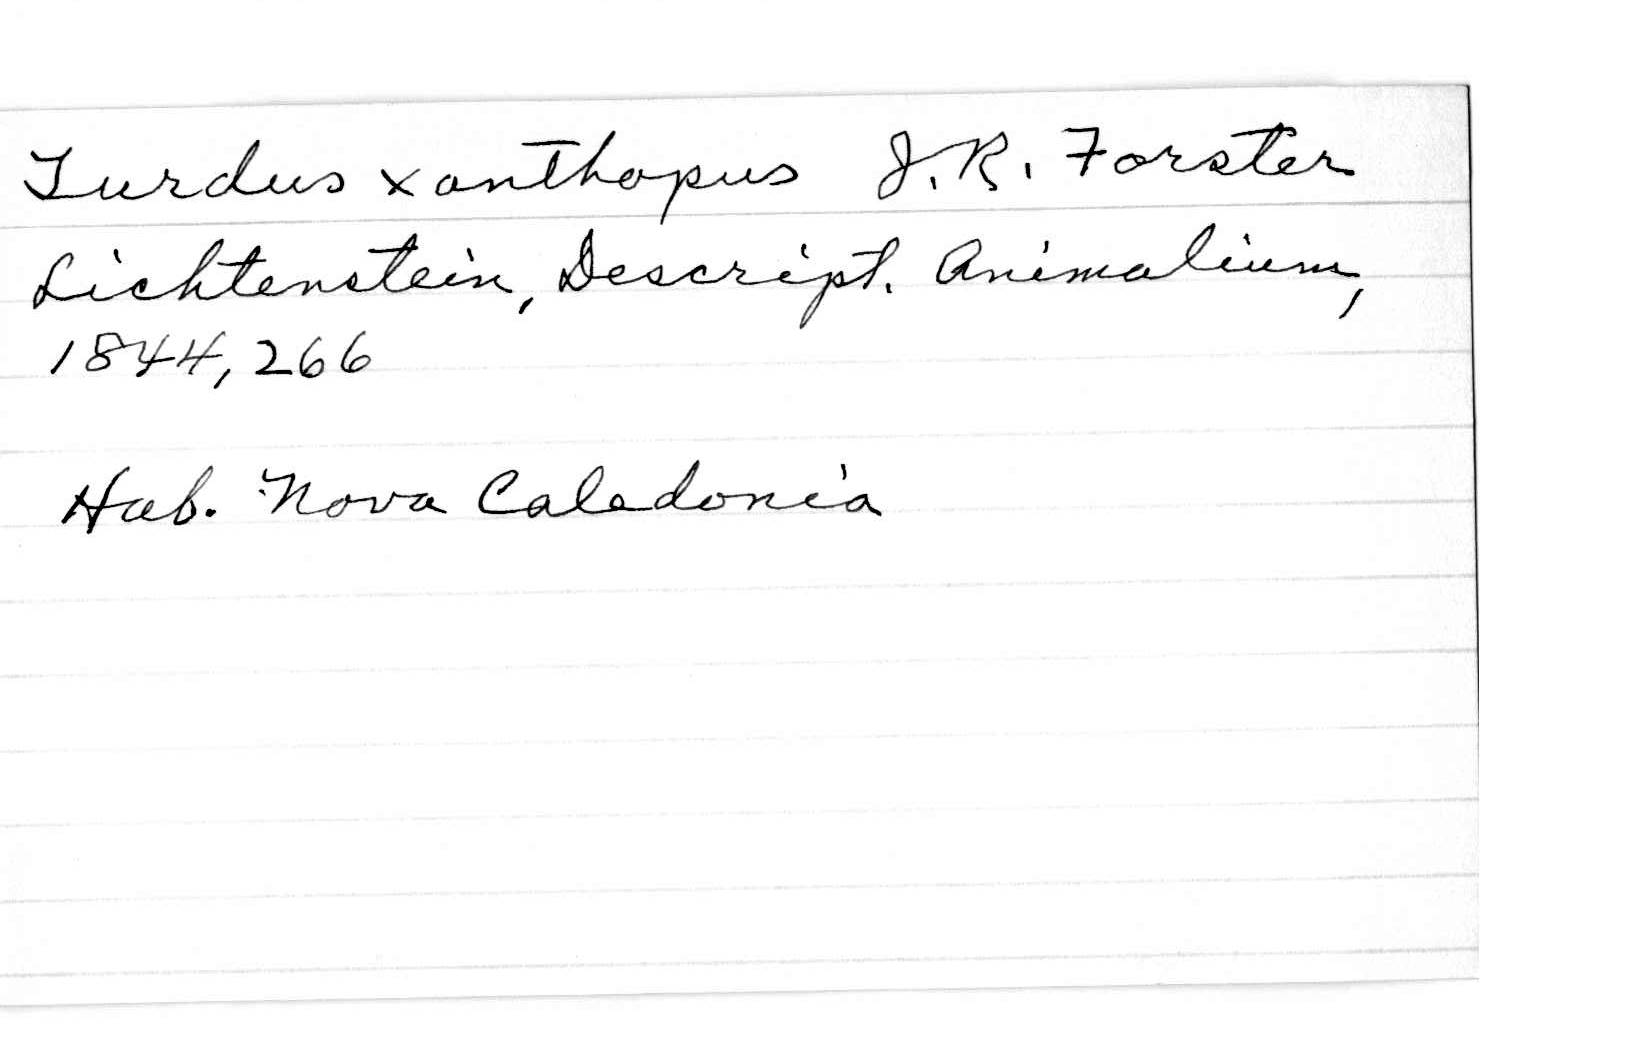 Turdus xanthopus J. R. Forster
Lichtenstein, Descript. Animalium,
1844, 266
Hab. Nova Caledonia